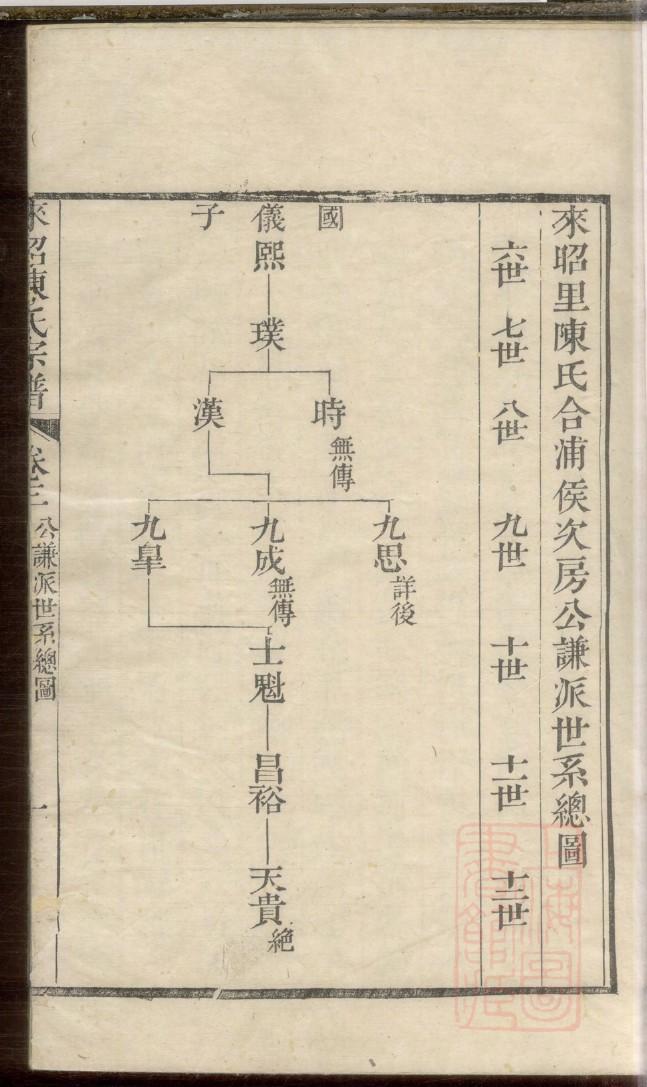 來昭里陳氏合浦侯次房公謙派世系總圖
六世 七世 八世 九世 十世 十一世 十二世
國 儀 子
熙
璞
時 無傳 漢
九思 詳後 九成 無傳 九皐
士魁
昌裕
天貴 絶
來昭陳氏宗譜 卷三 公謙派世系總圖 一